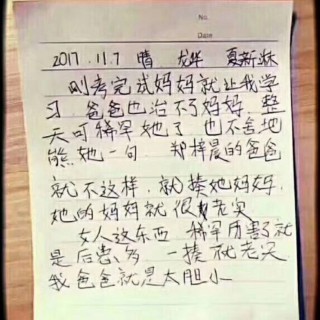 No.
Date
2017.11.7 晴 龙华 夏新淋
刚考完试妈妈就让我学
习.爸爸也治不了妈妈.整
天可稀罕她了 也不舍地
熊她一句 郑梓晨的爸爸
就不这样.就揍她妈妈.
她的妈妈就很老实
女人这东西 稀罕历害了就
是后患多 一揍就老实
我爸爸就是太胆小